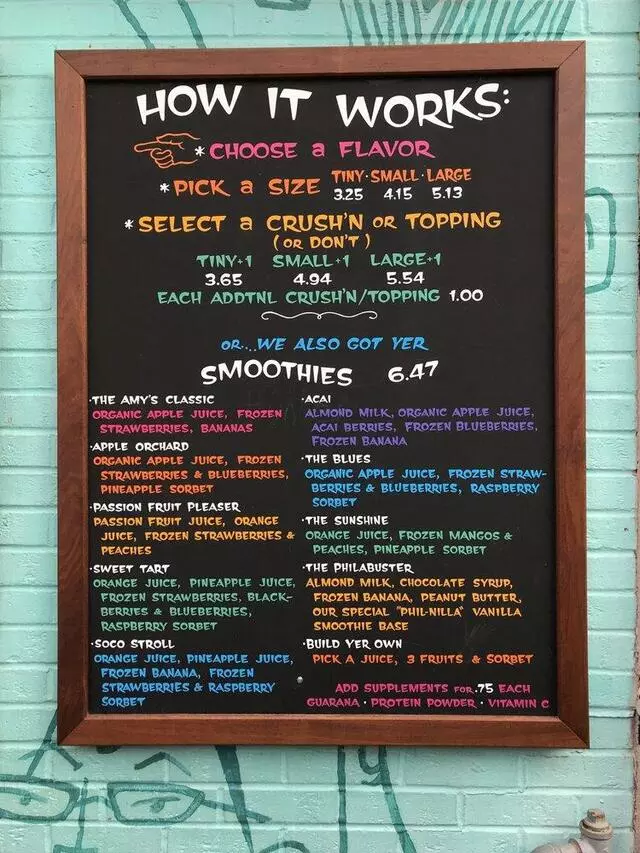 HOW IT WORKS:
* CHOOSE a FLAVOR
* PICK a SIZE TINY · SMALL · LARGE
3.25 4.15 5.13
* SELECT a CRUSH'N OR TOPPING
(OR DON'T)
TINY+1 SMALL+1 LARGE+1
3.65 4.94 5.54
EACH ADDTNL CRUSH'N/TOPPING 1.00
OR....WE ALSO GOT YER
SMOOTHIES 6.47
·THE AMY'S CLASSIC
ORGANIC APPLE JUICE, FROZEN
STRAWBERRIES, BANANAS
·APPLE ORCHARD
ORGANIC APPLE JUICE, FROZEN
STRAWBERRIES & BLUEBERRIES,
PINEAPPLE SORBET
·PASSION FRUIT PLEASER
PASSION FRUIT JUICE, ORANGE
JUICE, FROZEN STRAWBERRIES &
PEACHES
·SWEET TART
ORANGE JUICE, PINEAPPLE JUICE,
FROZEN STRAWBERRIES, BLACK-
BERRIES & BLUEBERRIES,
RASPBERRY SORBET
·SOCO STROLL
ORANGE JUICE, PINEAPPLE JUICE,
FROZEN BANANA, FROZEN
STRAWBERRIES & RASPBERRY
SORBET
·ACAI
ALMOND MILK, ORGANIC APPLE JUICE,
ACAI BERRIES, FROZEN BLUEBERRIES,
FROZEN BANANA
·THE BLUES
ORGANIC APPLE JUICE, FROZEN STRAW-
BERRIES & BLUEBERRIES, RASPBERRY
SORBET
·THE SUNSHINE
ORANGE JUICE, FROZEN MANGOS &
PEACHES, PINEAPPLE SORBET
·THE PHILABUSTER
ALMOND MILK, CHOCOLATE SYRUP,
FROZEN BANANA, PEANUT BUTTER,
OUR SPECIAL "PHIL-NILLA" VANILLA
SMOOTHIE BASE
·BUILD YER OWN
PICK A JUICE, 3 FRUITS & SORBET
ADD SUPPLEMENTS FOR .75 EACH
GUARANA · PROTEIN POWDER · VITAMIN C